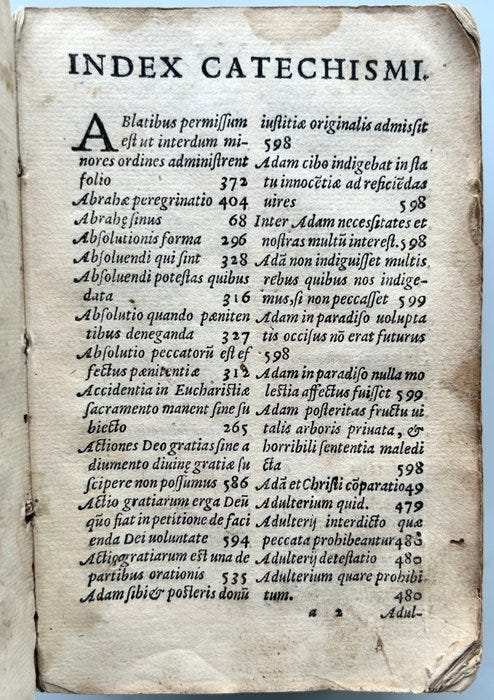 INDEX CATECHISMI.
ABlatibus permiſſum
eſt ut interdum mi-
nores ordines adminiſtrent
folio 372
Abrahæ peregrinatio 404
Abrahę ſinus 68
Abſolutionis forma 296
Abſoluendi qui ſint 328
Abſoluendi poteſtas quibus
data 316
Abſolutio quando pæniten
tibus deneganda 327
Abſolutio peccatorũ eſt ef
fectus pænitentiæ 312
Accidentia in Euchariſtiæ
ſacramento manent ſine ſu
biecto 265
Actiones Deo gratias ſine a
diumento diuinę gratiæ ſu
ſcipere non poſſumus 586
Actio gratiarum erga Deũ
quo fiat in petitione de faci
enda Dei uoluntate 594
Actio gratiarum eſt una de
partibus orationis 535
Adam ſibi & poſteris donũ
iuſtitiæ originalis admiſit
598
Adam cibo indigebat in ſta
tu innocẽtiæ ad reficiẽdas
uires 598
Inter Adam neceſſitates et
noſtras multũ intereſt. 598
Adã non indiguiſſet multis
rebus quibus nos indige-
mus, ſi non peccaſſet 599
Adam in paradiſo uolupta
tis occiſus nõ erat futurus
598
Adam in paradiſo nulla mo
leſtia affectus fuiſſet 599
Adam poſteritas fructu ui
talis arboris priuata, &
horribili ſententia maledi
cta 598
Adã et Chriſti cõparatio 49
Adulterium quid. 479
Adulterij interdicto quæ
peccata prohibeantur 480
Adulterij deteſtatio 480
Adulterium quare prohibi
tum. 480
a 2 Adul-